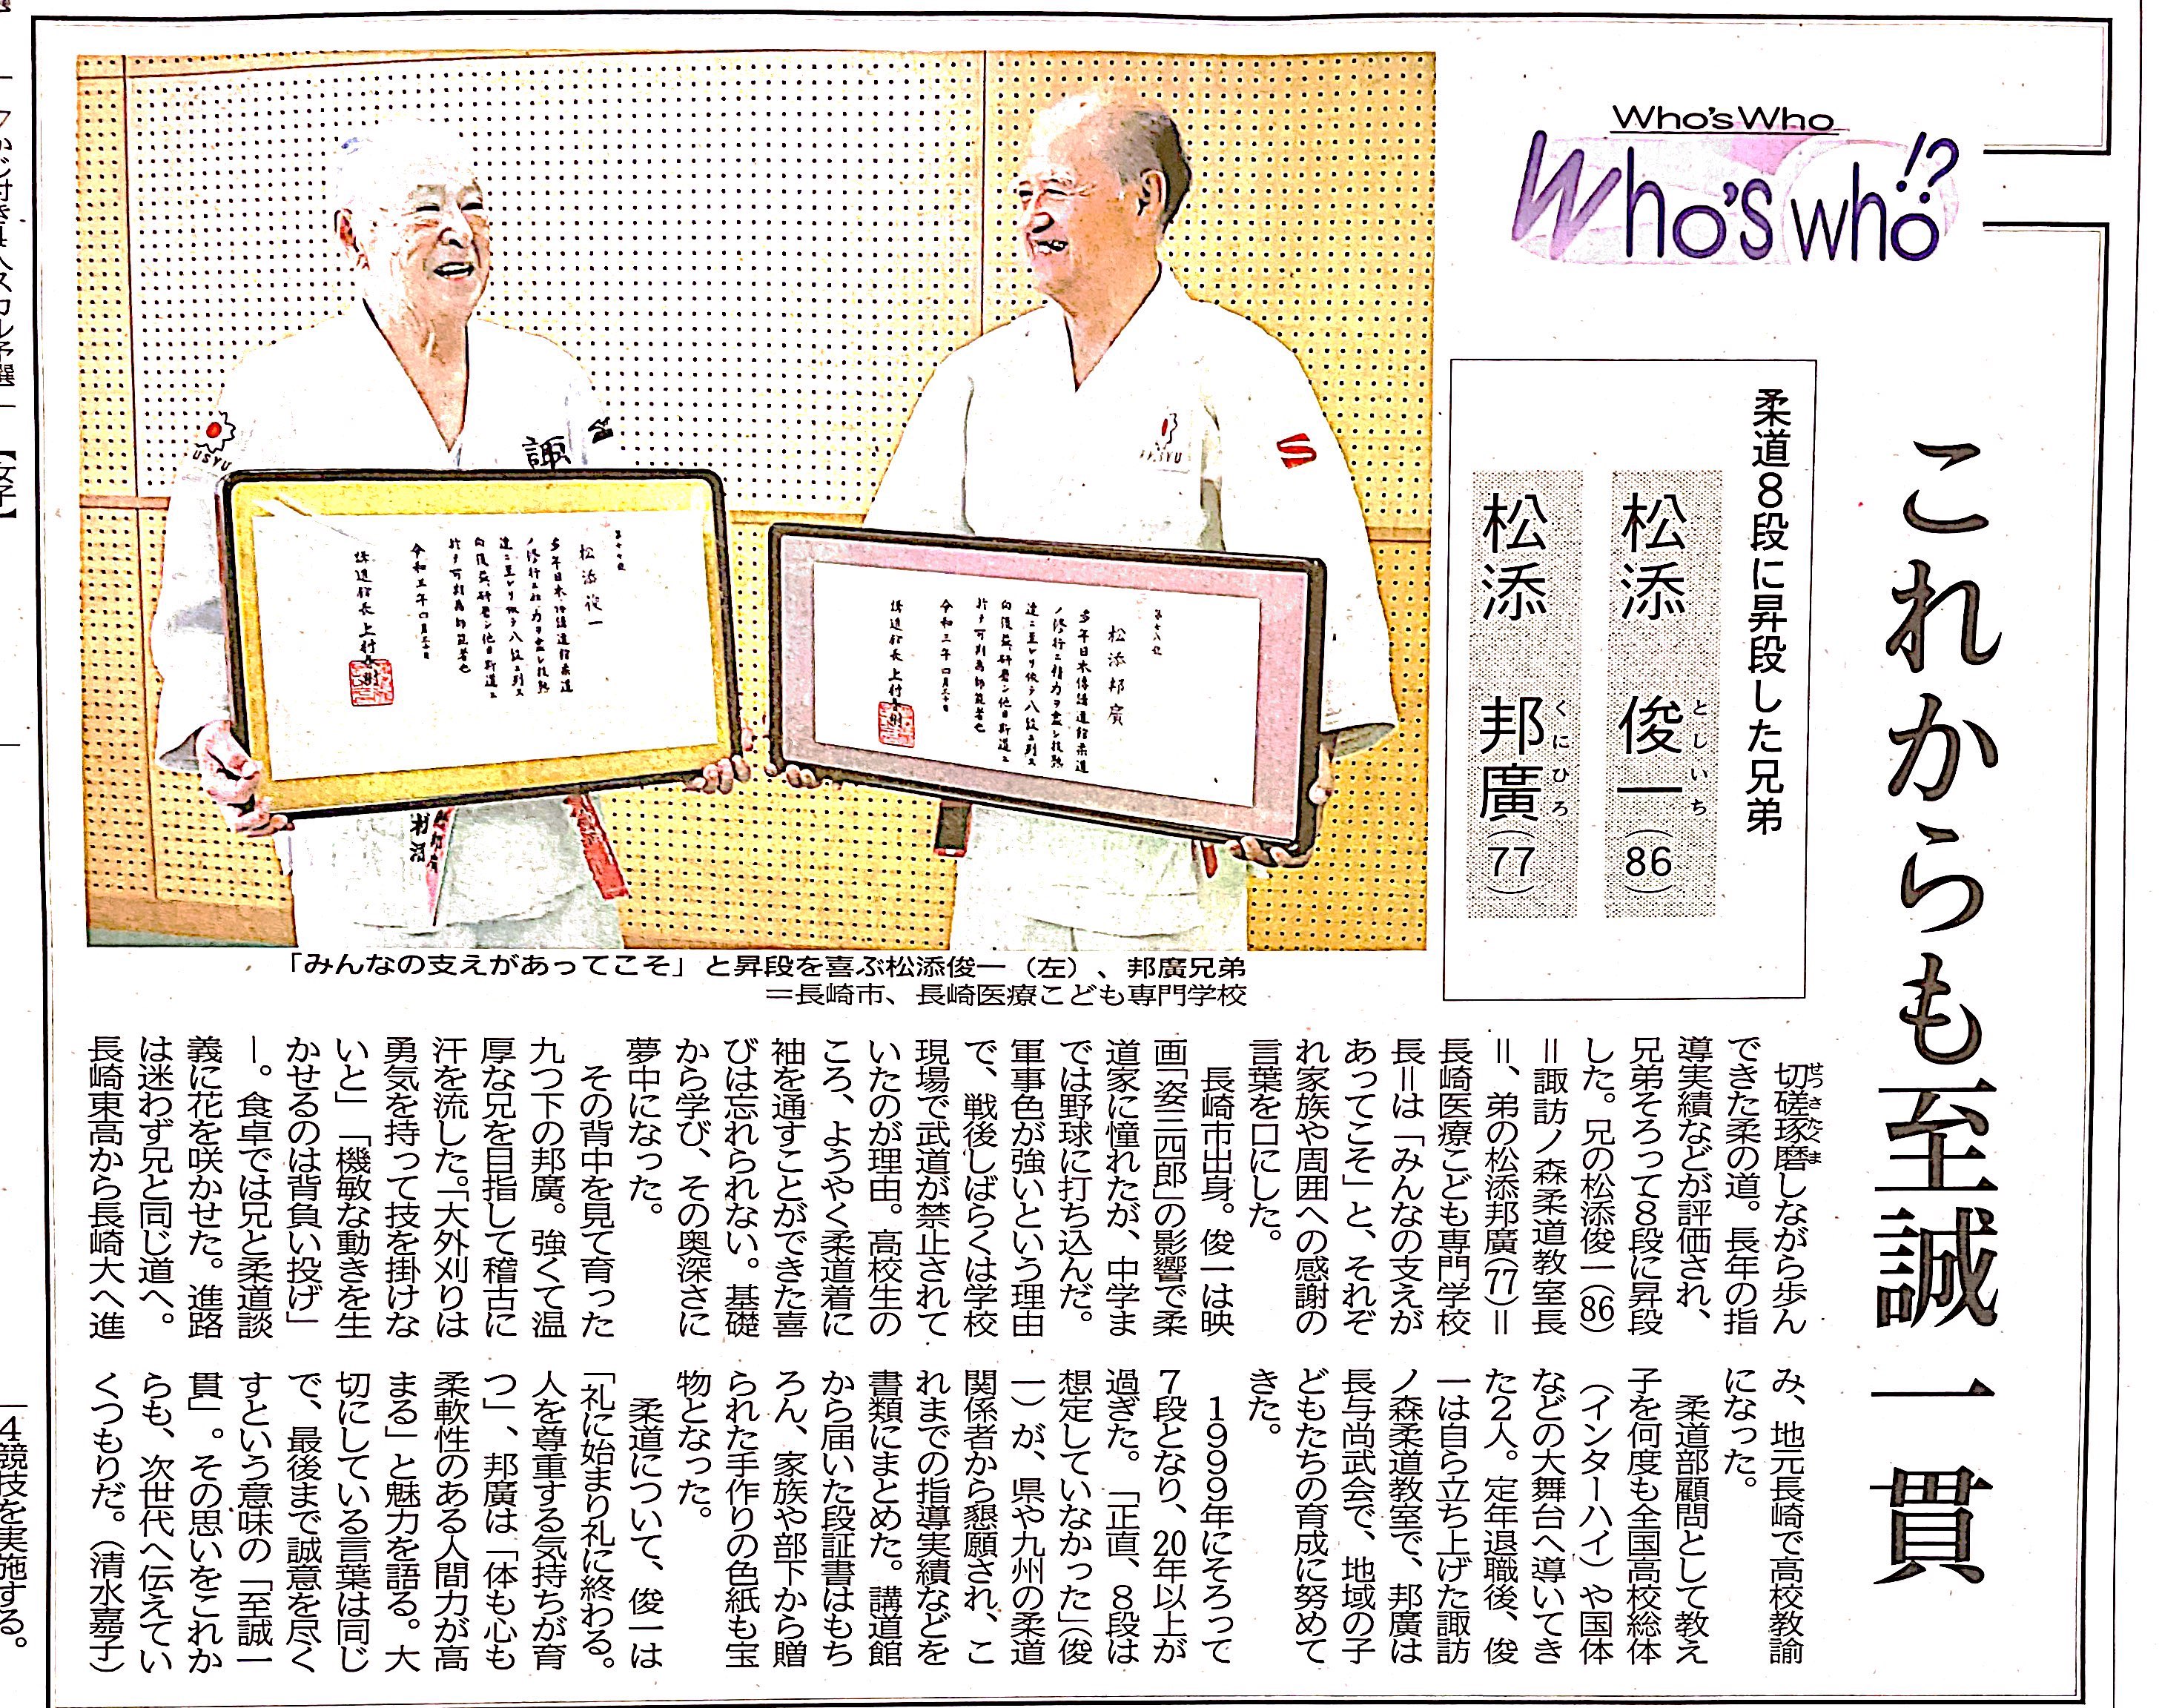 Who's Who
Who's who!?
これからも至誠一貫
柔道8段に昇段した兄弟
松添 俊一(86)
としいち
松添 邦廣(77)
くにひろ
諏
USYU
松添俊一
多年日本傳講道館柔道
ノ修行ニ精力ヲ盡シ技熟
達ニ至レリ依テ八段ニ列ス
向後益研磨シ他日斯道ニ
於テ可到為師範者也
令和三年四月三十日
講道館長上村春樹
松添邦廣
多年日本傳講道館柔道
ノ修行ニ精力ヲ盡シ技熟
達ニ至レリ依テ八段ニ列ス
向後益研磨シ他日斯道ニ
於テ可到為師範者也
令和三年四月三十日
講道館長上村春樹
「みんなの支えがあってこそ」と昇段を喜ぶ松添俊一(左)、邦廣兄弟
＝長崎市、長崎医療こども専門学校
切磋琢磨しながら歩ん
せっさたくま
できた柔の道。長年の指
導実績などが評価され、
兄弟そろって8段に昇段
した。兄の松添俊一(86)
＝諏訪ノ森柔道教室長
＝、弟の松添邦廣(77)＝
長崎医療こども専門学校
長＝は「みんなの支えが
あってこそ」と、それぞ
れ家族や周囲への感謝の
言葉を口にした。
長崎市出身。俊一は映
画「姿三四郎」の影響で柔
道家に憧れたが、中学ま
では野球に打ち込んだ。
軍事色が強いという理由
で、戦後しばらくは学校
現場で武道が禁止されて
いたのが理由。高校生の
ころ、ようやく柔道着に
袖を通すことができた喜
びは忘れられない。基礎
から学び、その奥深さに
夢中になった。
その背中を見て育った
九つ下の邦廣。強くて温
厚な兄を目指して稽古に
汗を流した。「大外刈りは
勇気を持って技を掛けな
いと」「機敏な動きを生
かせるのは背負い投げ」
―。食卓では兄と柔道談
義に花を咲かせた。進路
は迷わず兄と同じ道へ。
長崎東高から長崎大へ進
み、地元長崎で高校教諭
になった。
柔道部顧問として教え
子を何度も全国高校総体
(インターハイ)や国体
などの大舞台へ導いてき
た2人。定年退職後、俊
一は自ら立ち上げた諏訪
ノ森柔道教室で、邦廣は
長与尚武会で、地域の子
どもたちの育成に努めて
きた。
1999年にそろって
7段となり、20年以上が
過ぎた。「正直、8段は
想定していなかった」(俊
一)が、県や九州の柔道
関係者から懇願され、こ
れまでの指導実績などを
書類にまとめた。講道館
から届いた段証書はもち
ろん、家族や部下から贈
られた手作りの色紙も宝
物となった。
柔道について、俊一は
「礼に始まり礼に終わる。
人を尊重する気持ちが育
つ」、邦廣は「体も心も
柔軟性のある人間力が高
まる」と魅力を語る。大
切にしている言葉は同じ
で、最後まで誠意を尽く
すという意味の「至誠一
貫」。その思いをこれか
らも、次世代へ伝えてい
くつもりだ。(清水嘉子)
【女子】
4競技を実施する。